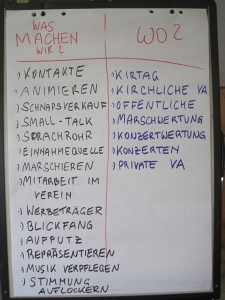 WAS
MACHEN
WIR?
·) KONTAKTE
·) ANIMIEREN
·) SCHNAPSVERKAUF
·) SMALL-TALK
·) SPRACHROHR
·) EINNAHMEQUELLE
·) MARSCHIEREN
·) MITARBEIT IM
VEREIN
·) WERBETRÄGER
·) BLICKFANG
·) AUFPUTZ
·) REPRÄSENTIEREN
·) MUSIK VERPFLEGEN
·) STIMMUNG
AUFLOCKERN
WO?
·) KIRTAG
·) KIRCHLICHE VA
·) ÖFFENTLICHE
·) MARSCHWERTUNG
·) KONZERTWERTUNG
·) KONZERTEN
·) PRIVATE VA